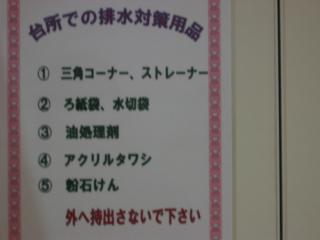 台所での排水対策用品
① 三角コーナー、ストレーナー
② ろ紙袋、水切袋
③ 油処理剤
④ アクリルタワシ
⑤ 粉石けん
外へ持出さないで下さい